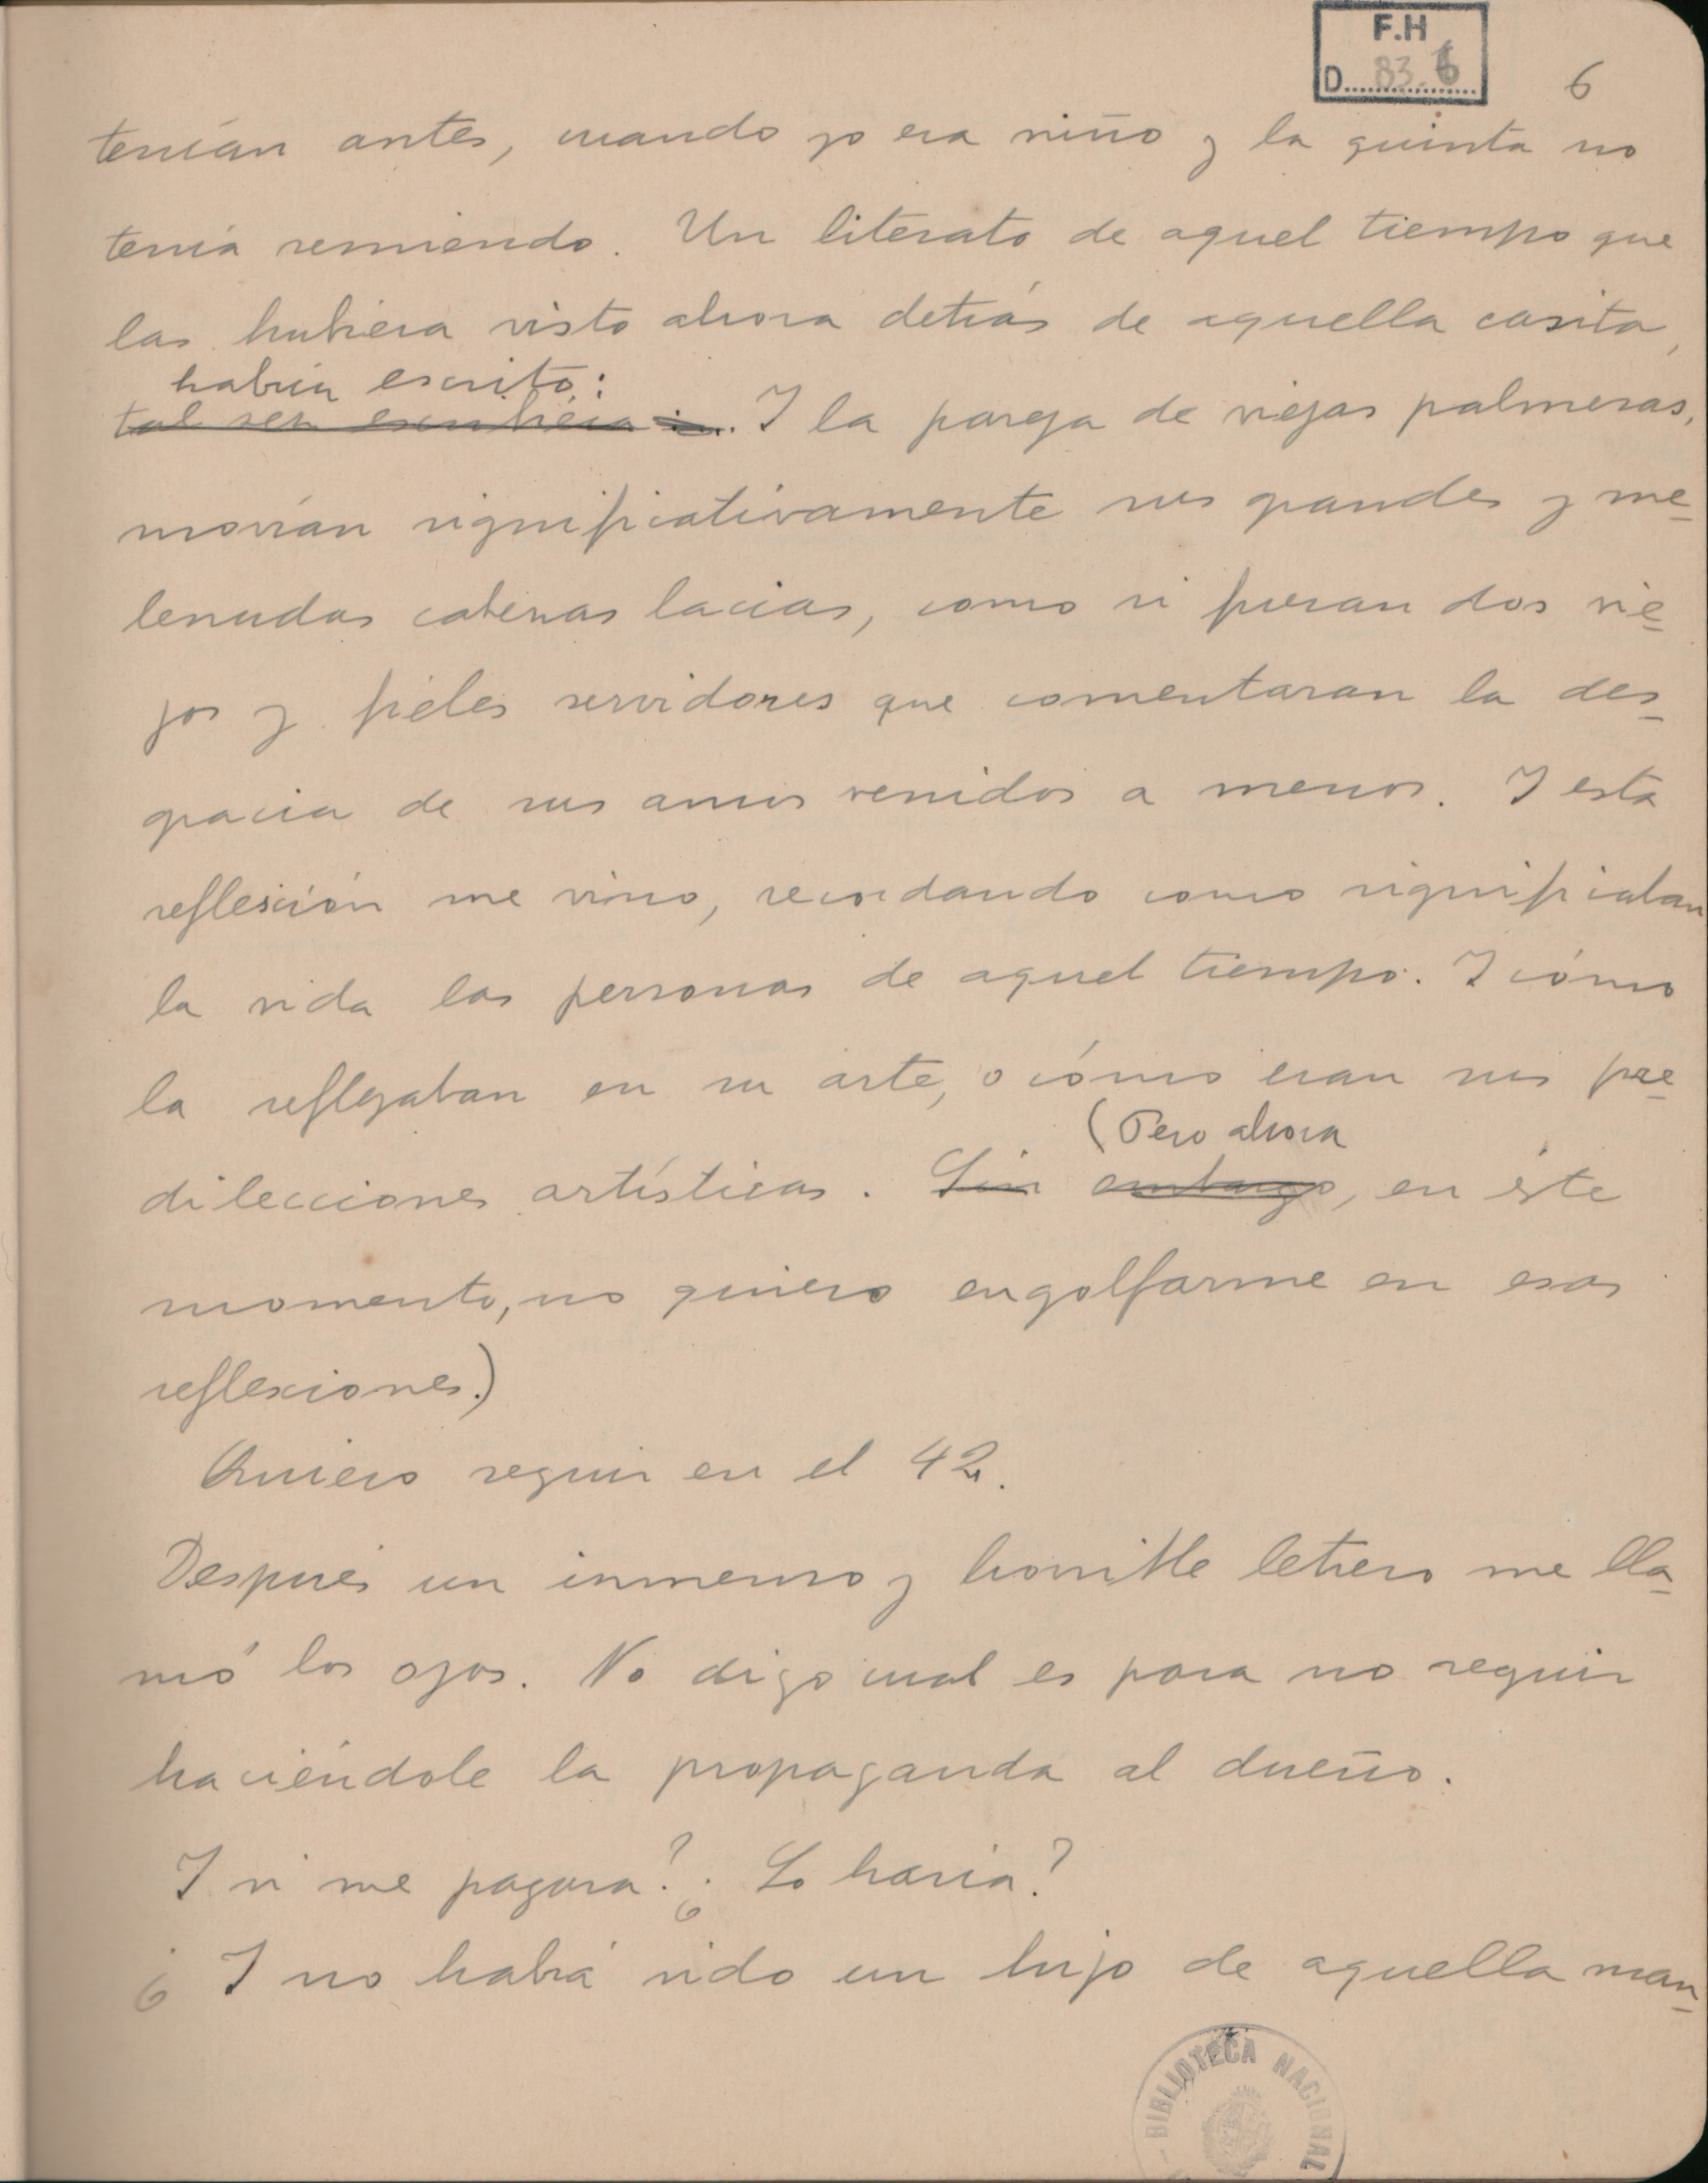 F.H
D. 83.6
6
tenían antes, cuando yo era niño y la quinta no
tenía remiendo. Un literato de aquel tiempo que
las hubiera visto ahora detrás de aquella casita,
habría escrito:
tal vez escribiera: . Y la pareja de viejas palmeras,
movían significativamente sus grandes y me-
lenudas cabezas lacias, como si fueran dos vie-
jos y fieles servidores que comentaran la des-
gracia de sus amos venidos a menos. Y esta
reflexión me vino, recordando como significaban
la vida las personas de aquel tiempo. Y cómo
la reflejaban en su arte, o cómo eran sus pre-
(Pero ahora
dilecciones artísticas. Sin embargo, en éste
momento, no quiero engolfarme en esas
reflexiones.)
Quiero seguir en el 42.
Después un inmenso y horrible letrero me lla-
mó los ojos. No digo cual es para no seguir
haciéndole la propaganda al dueño.
Y si me pagara? ¿Lo haría?
¿Y no habrá sido un hijo de aquella man-
BIBLIOTECA NACIONAL